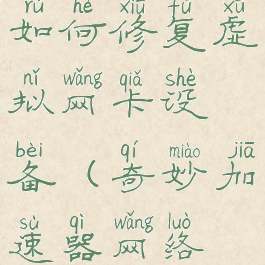 rú hé xiū fù xū
如何修复虚
nǐ wǎng qiǎ shè
拟网卡设
bèi qí miào jiā
备(奇妙加
sù qì wǎng luò
速器网络